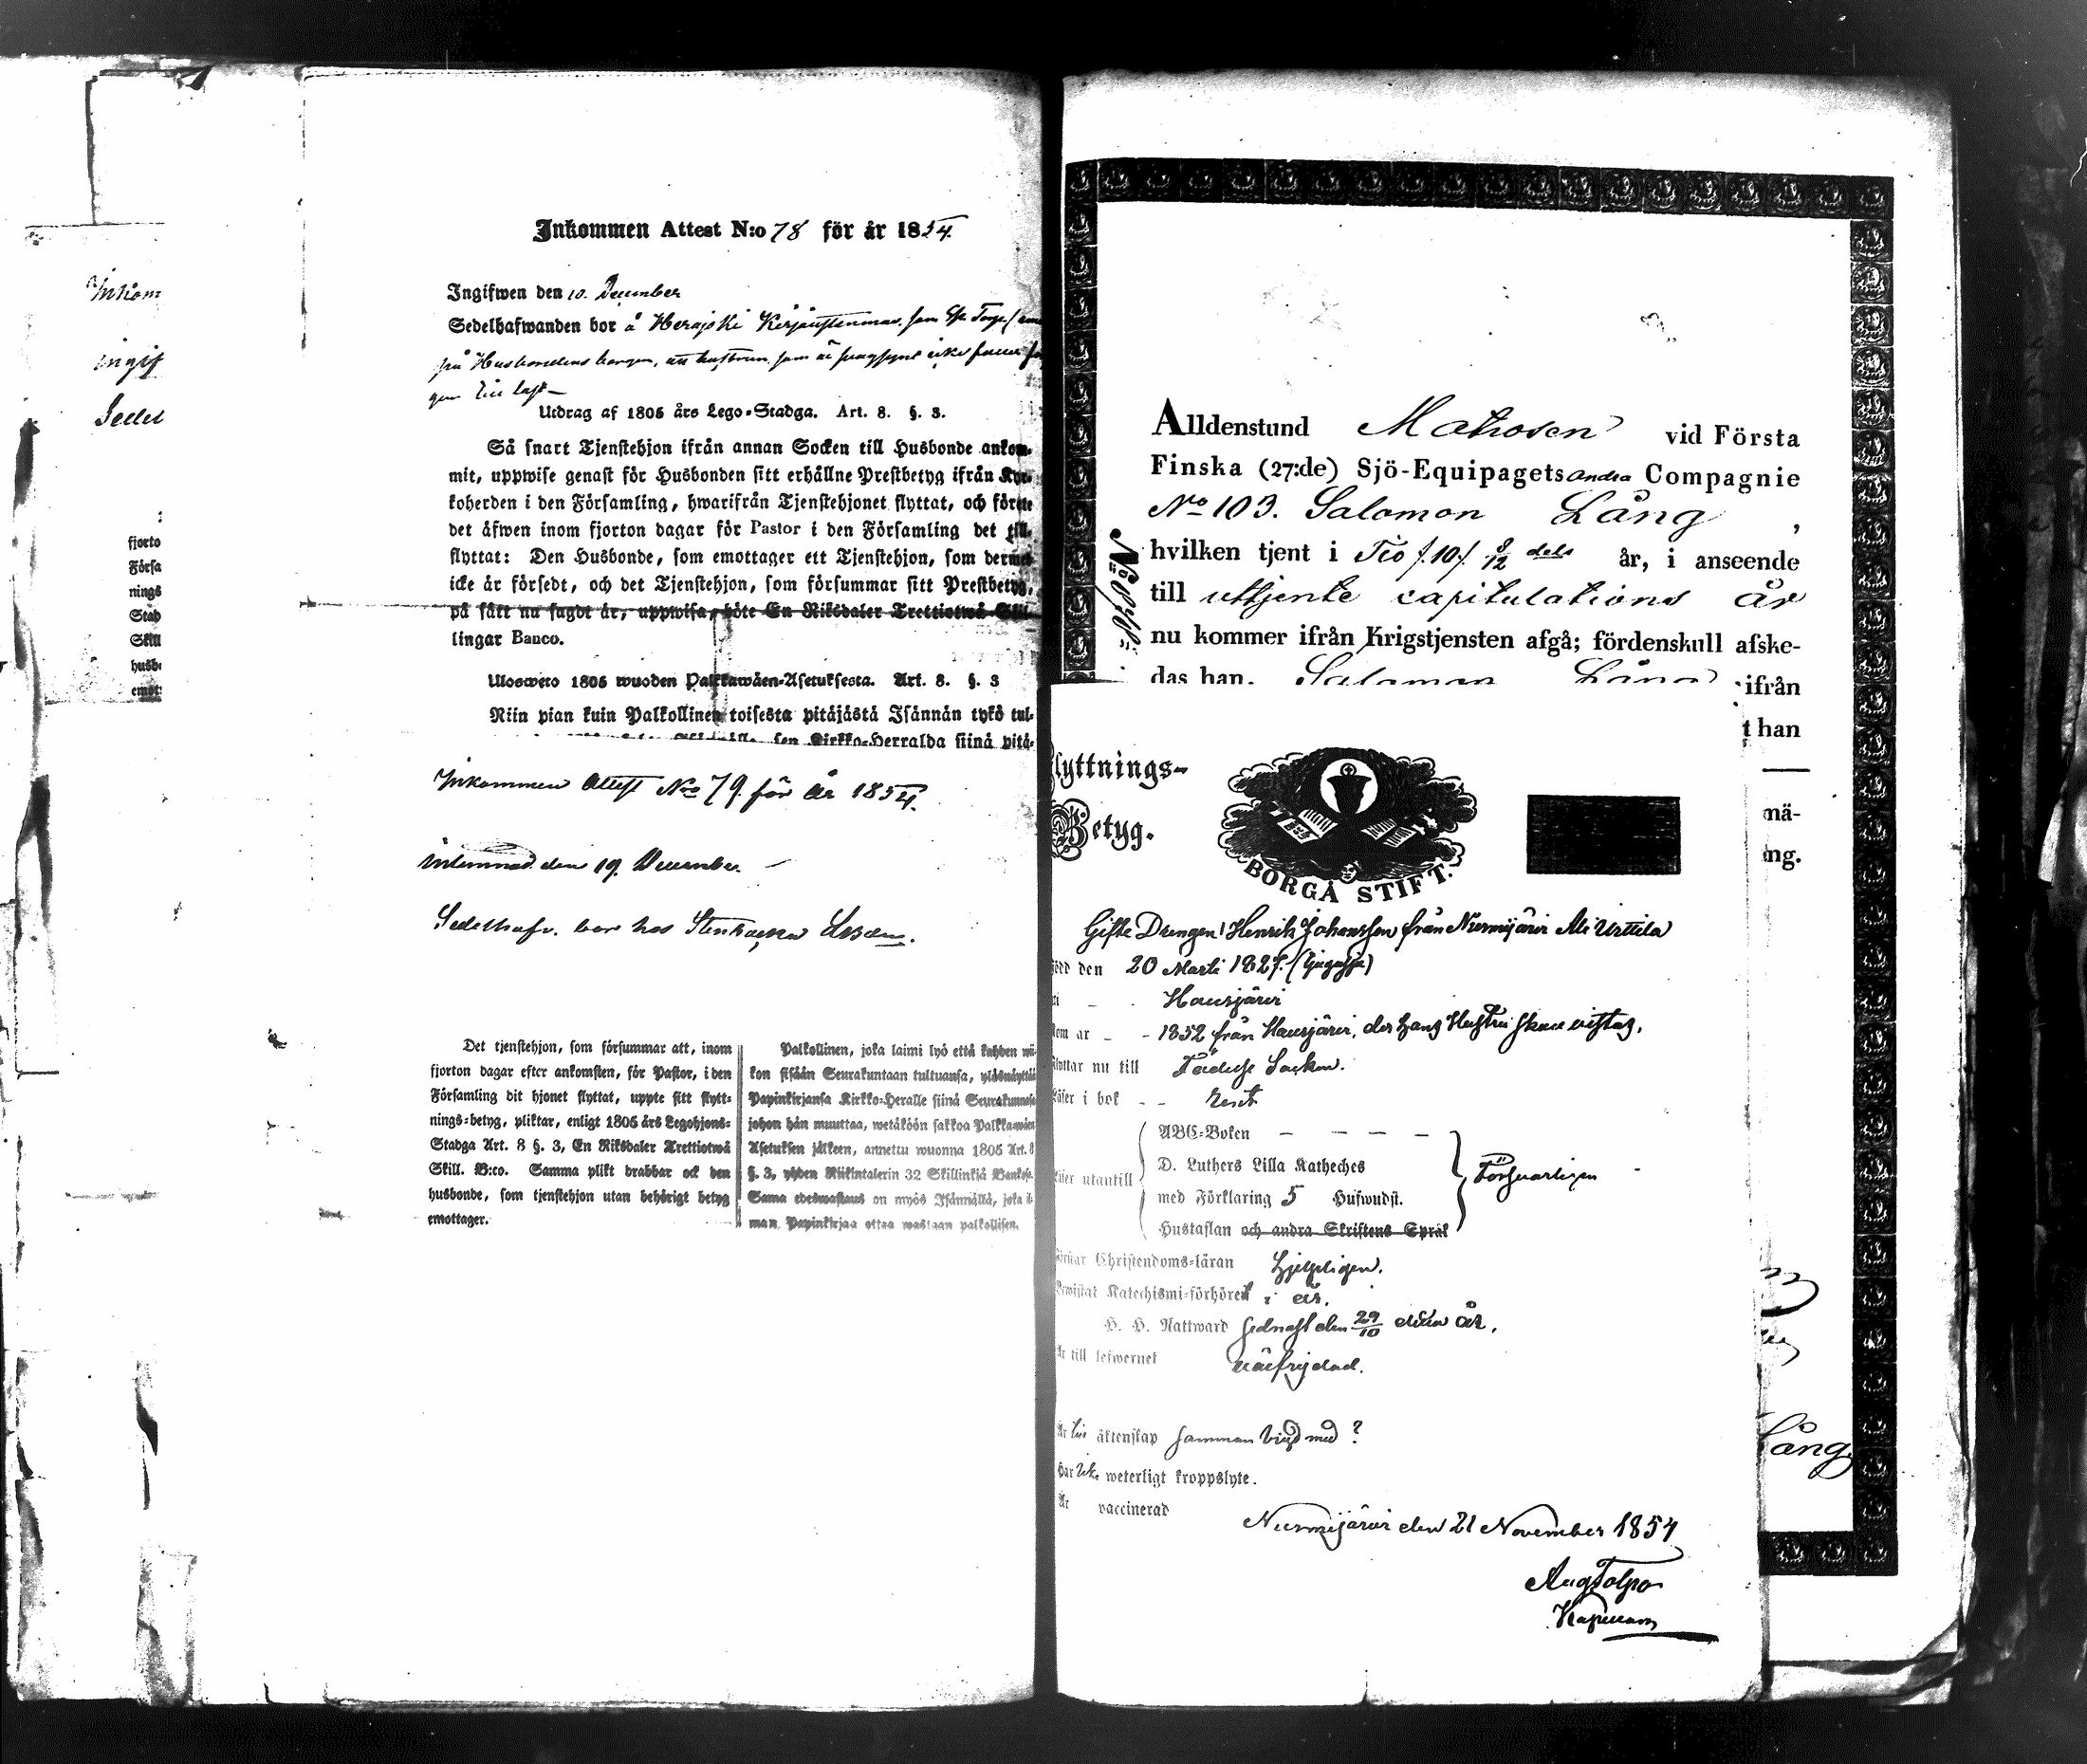 Inkom
ingif
Sedel
fjorto
Förfa
nings
Stad
Skill
husb
emot
Inkommen Attest N:o 78 för år 1854.
Ingifwen den 10. December
Sedelhafwanden bor å Herajoki
på Husbondens begäran, att hustrun, som är
Utdrag af 1805 års Lego-Stadga. Art. 8. §. 3.
Så snart Tjenstehjon ifrån annan Socken till Husbonde ankom-
mit, uppwise genast för Husbonden sitt erhållne Prestbetyg ifrån Kyr-
koherden i den Församling, hwarifrån Tjenstehjonet flyttat, och förete
det äfwen inom fjorton dagar för Pastor i den Församling det till-
flyttat: Den Husbonde, som emottager ett Tjenstehjon, som dermed
icke är försedt, och det Tjenstehjon, som försummar sitt Prestbetyg,
på sätt nu sagdt är, uppwisa, böte En Riksdaler Trettiotwå Skil-
lingar Banco.
Ulosweto 1805 wuoden Palkkawäen-Asetuksesta. Art. 8. §. 3
Niin pian kuin Palkollinen toisesta pitäjästä Isännän tykö tul-
sen Kirkko-Herralda siinä pitä-
Inkommen Attest No 79 för år 1854.
inlemnad den 19. December.
Sedelhafv. bor hos
Det tjenstehjon, som försummar att, inom
fjorton dagar efter ankomsten, för Pastor, i den
Församling dit hjonet flyttat, uppte sitt flytt-
nings-betyg, pliktar, enligt 1805 års Legohjons-
Stadga Art. 8 §. 3, En Riksdaler Trettiotwå
Skill. B:co. Samma plikt drabbar ock den
husbonde, som tjenstehjon utan behörigt betyg
emottager.
Palkollinen, joka laimi lyö että kahden wii-
kon sisään Seurakuntaan tultuansa, ylösnäyttää
Papinkirjansa Kirkko-Heralle siinä Seurakunnasa
johon hän muuttaa, wetäköön sakkoa Palkkawäen
Asetuksen jälkeen, annettu wuonna 1805 Art. 8
§. 3, yhden Riikintalerin 32 Skillinkiä Bankos.
Sama edeswastaus on myös Isännällä, joka il-
man Papinkirjaa ottaa wastaan palkollisen.
Alldenstund Matrosen vid Första
Finska (27:de) Sjö-Equipagets andra Compagnie
No 103. Salomon Lång,
hvilken tjent i Tio /.10./ 8/12 dels år, i anseende
till uttjente capitulations år
nu kommer ifrån Krigstjensten afgå; fördenskull afske-
das han. Salomon Lång ifrån
t han
mä-
ng.
Lång
Flyttnings-
Betyg.
BORGÅ STIFT.
Gifte Drengen Henrik Johansson från Nurmijärvi Ali Urttila
född den 20 Martii 1827.
i - - Hausjärvi
kom år - - 1852 från Hausjärvi, der hans Hustru skall vistas.
flyttar nu till Socken.
Läser i bok - -
Läser utantill
ABC-Boken - - - -
D. Luthers Lilla Katheches
med Förklaring 5 Hufwudst.
Hustaflan och andra Skriftens Språk
Försvarligen
Förstår Christendoms-läran Hjelpligen.
Bewistat Katechismi-förhören i år.
H. H. Nattward sednast den 29/10 detta år.
Är till lefwernet välfrejdad.
Är till äktenskap samman vigd med ?
Har icke weterligt kroppslyte.
Är vaccinerad
Nurmijärvi den 21 November 1854
Aug Tolpo
Kapellan